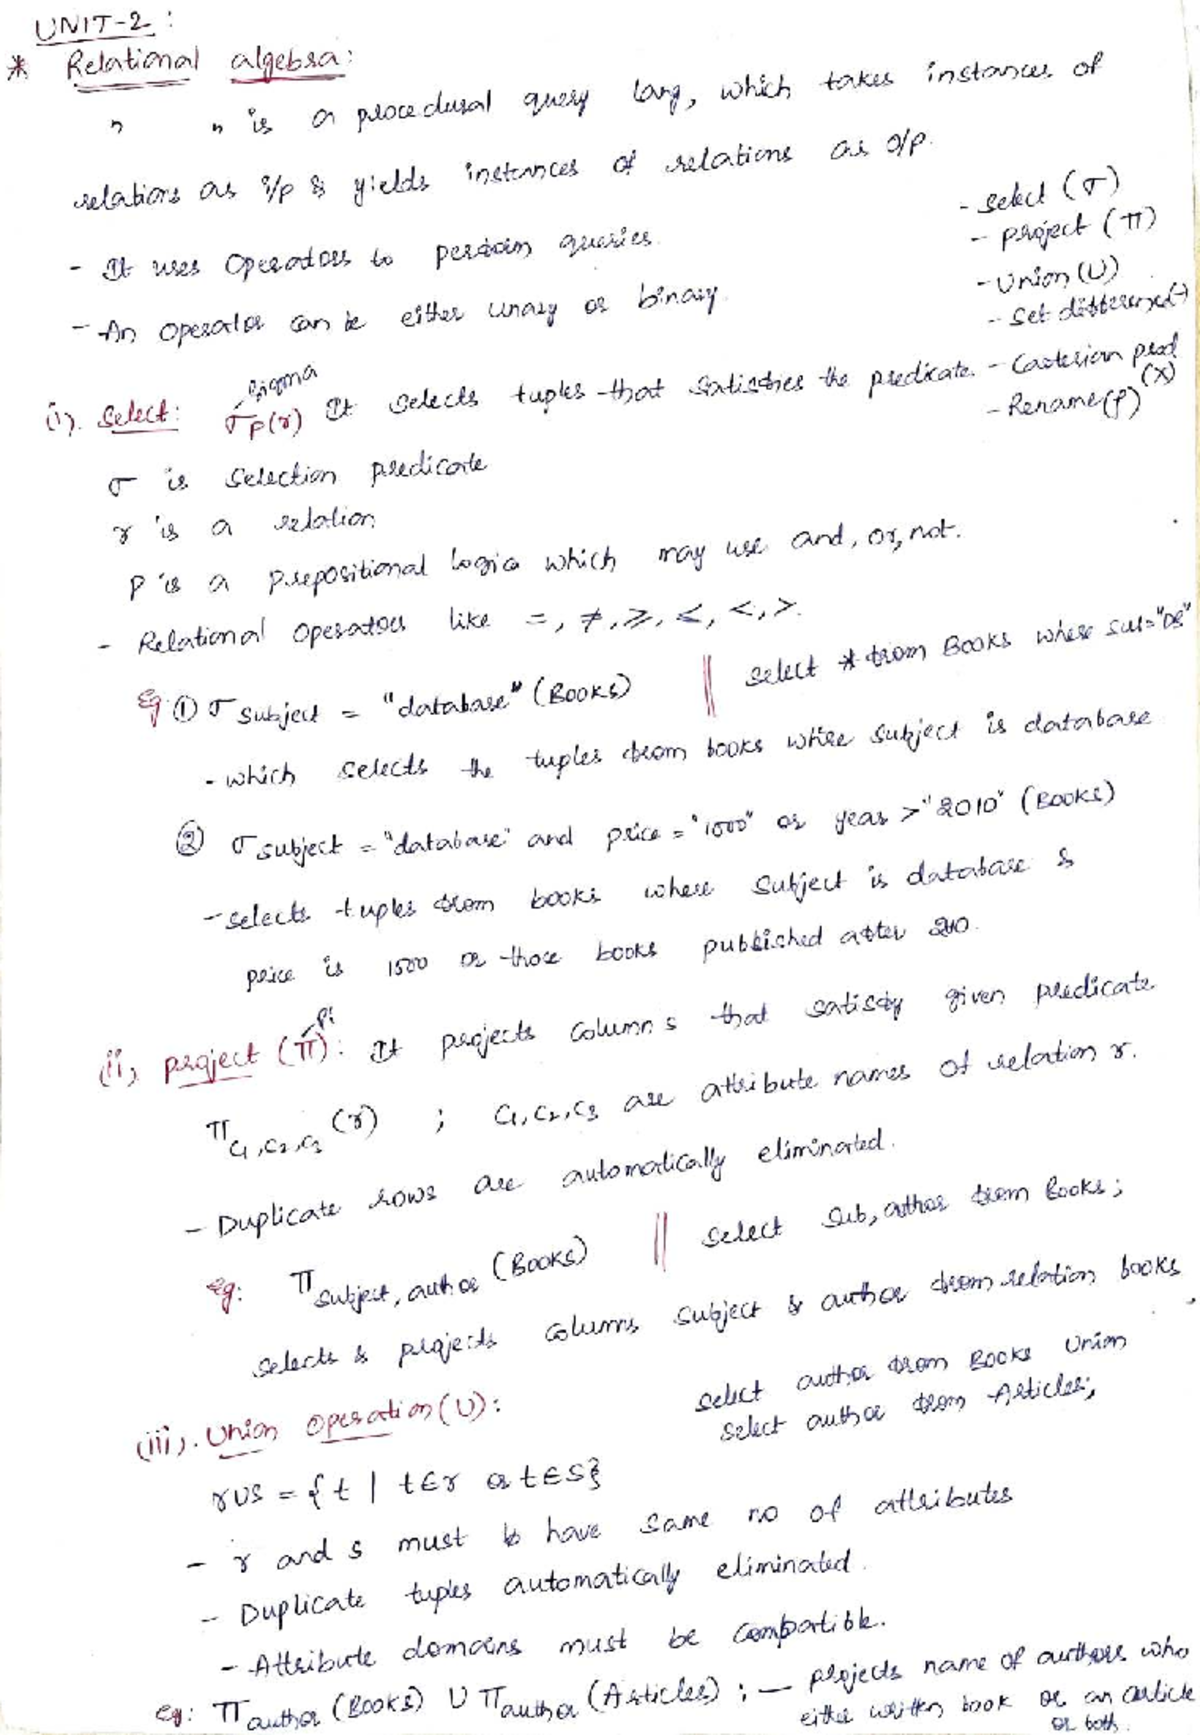 UNIT-2 :
* Relational algebra:
" " is a procedural query lang, which takes instances of
relations as i/p & yields instances of relations as o/p.
- It uses Operators to perform queries.
- An operator can be either unary or binary.
- Select (σ)
- Project (π)
- Union (U)
- Set difference(-)
- Cartesian prod (X)
- Rename(ρ)
(i). Select: σp(r) It selects tuples that satisfies the predicate.
sigma
σ is Selection predicate
r is a relation
P is a Prepositional logic which may use and, or, not.
- Relational Operators like =, ≠, ≥, ≤, <, >.
Eg ① σ subject = "database" (Books) || Select * from Books where sub="DB"
- which selects the tuples from books where subject is database
② σ subject = "database" and price = "1500" or year > "2010" (Books)
- selects tuples from books where Subject is database &
price is 1500 or those books published after 2010.
(ii) Project (π): It projects columns that satisfy given predicate
Pi
π c1,c2,c3 (r) ; c1, c2, c3 are attribute names of relation r.
- Duplicate rows are automatically eliminated.
eg: π subject, author (Books) || Select sub, author from Books;
selects & projects columns subject & author from relation books
(iii). Union Operation (U):
select author from Books Union
select author from Articles;
rUs = {t | t∈r or t∈s}
- r and s must have same no of attributes
- Duplicate tuples automatically eliminated.
- Attribute domains must be compatible.
eg: π author (Books) U π author (Articles) ; — projects name of authors who
either written book or an article
or both.